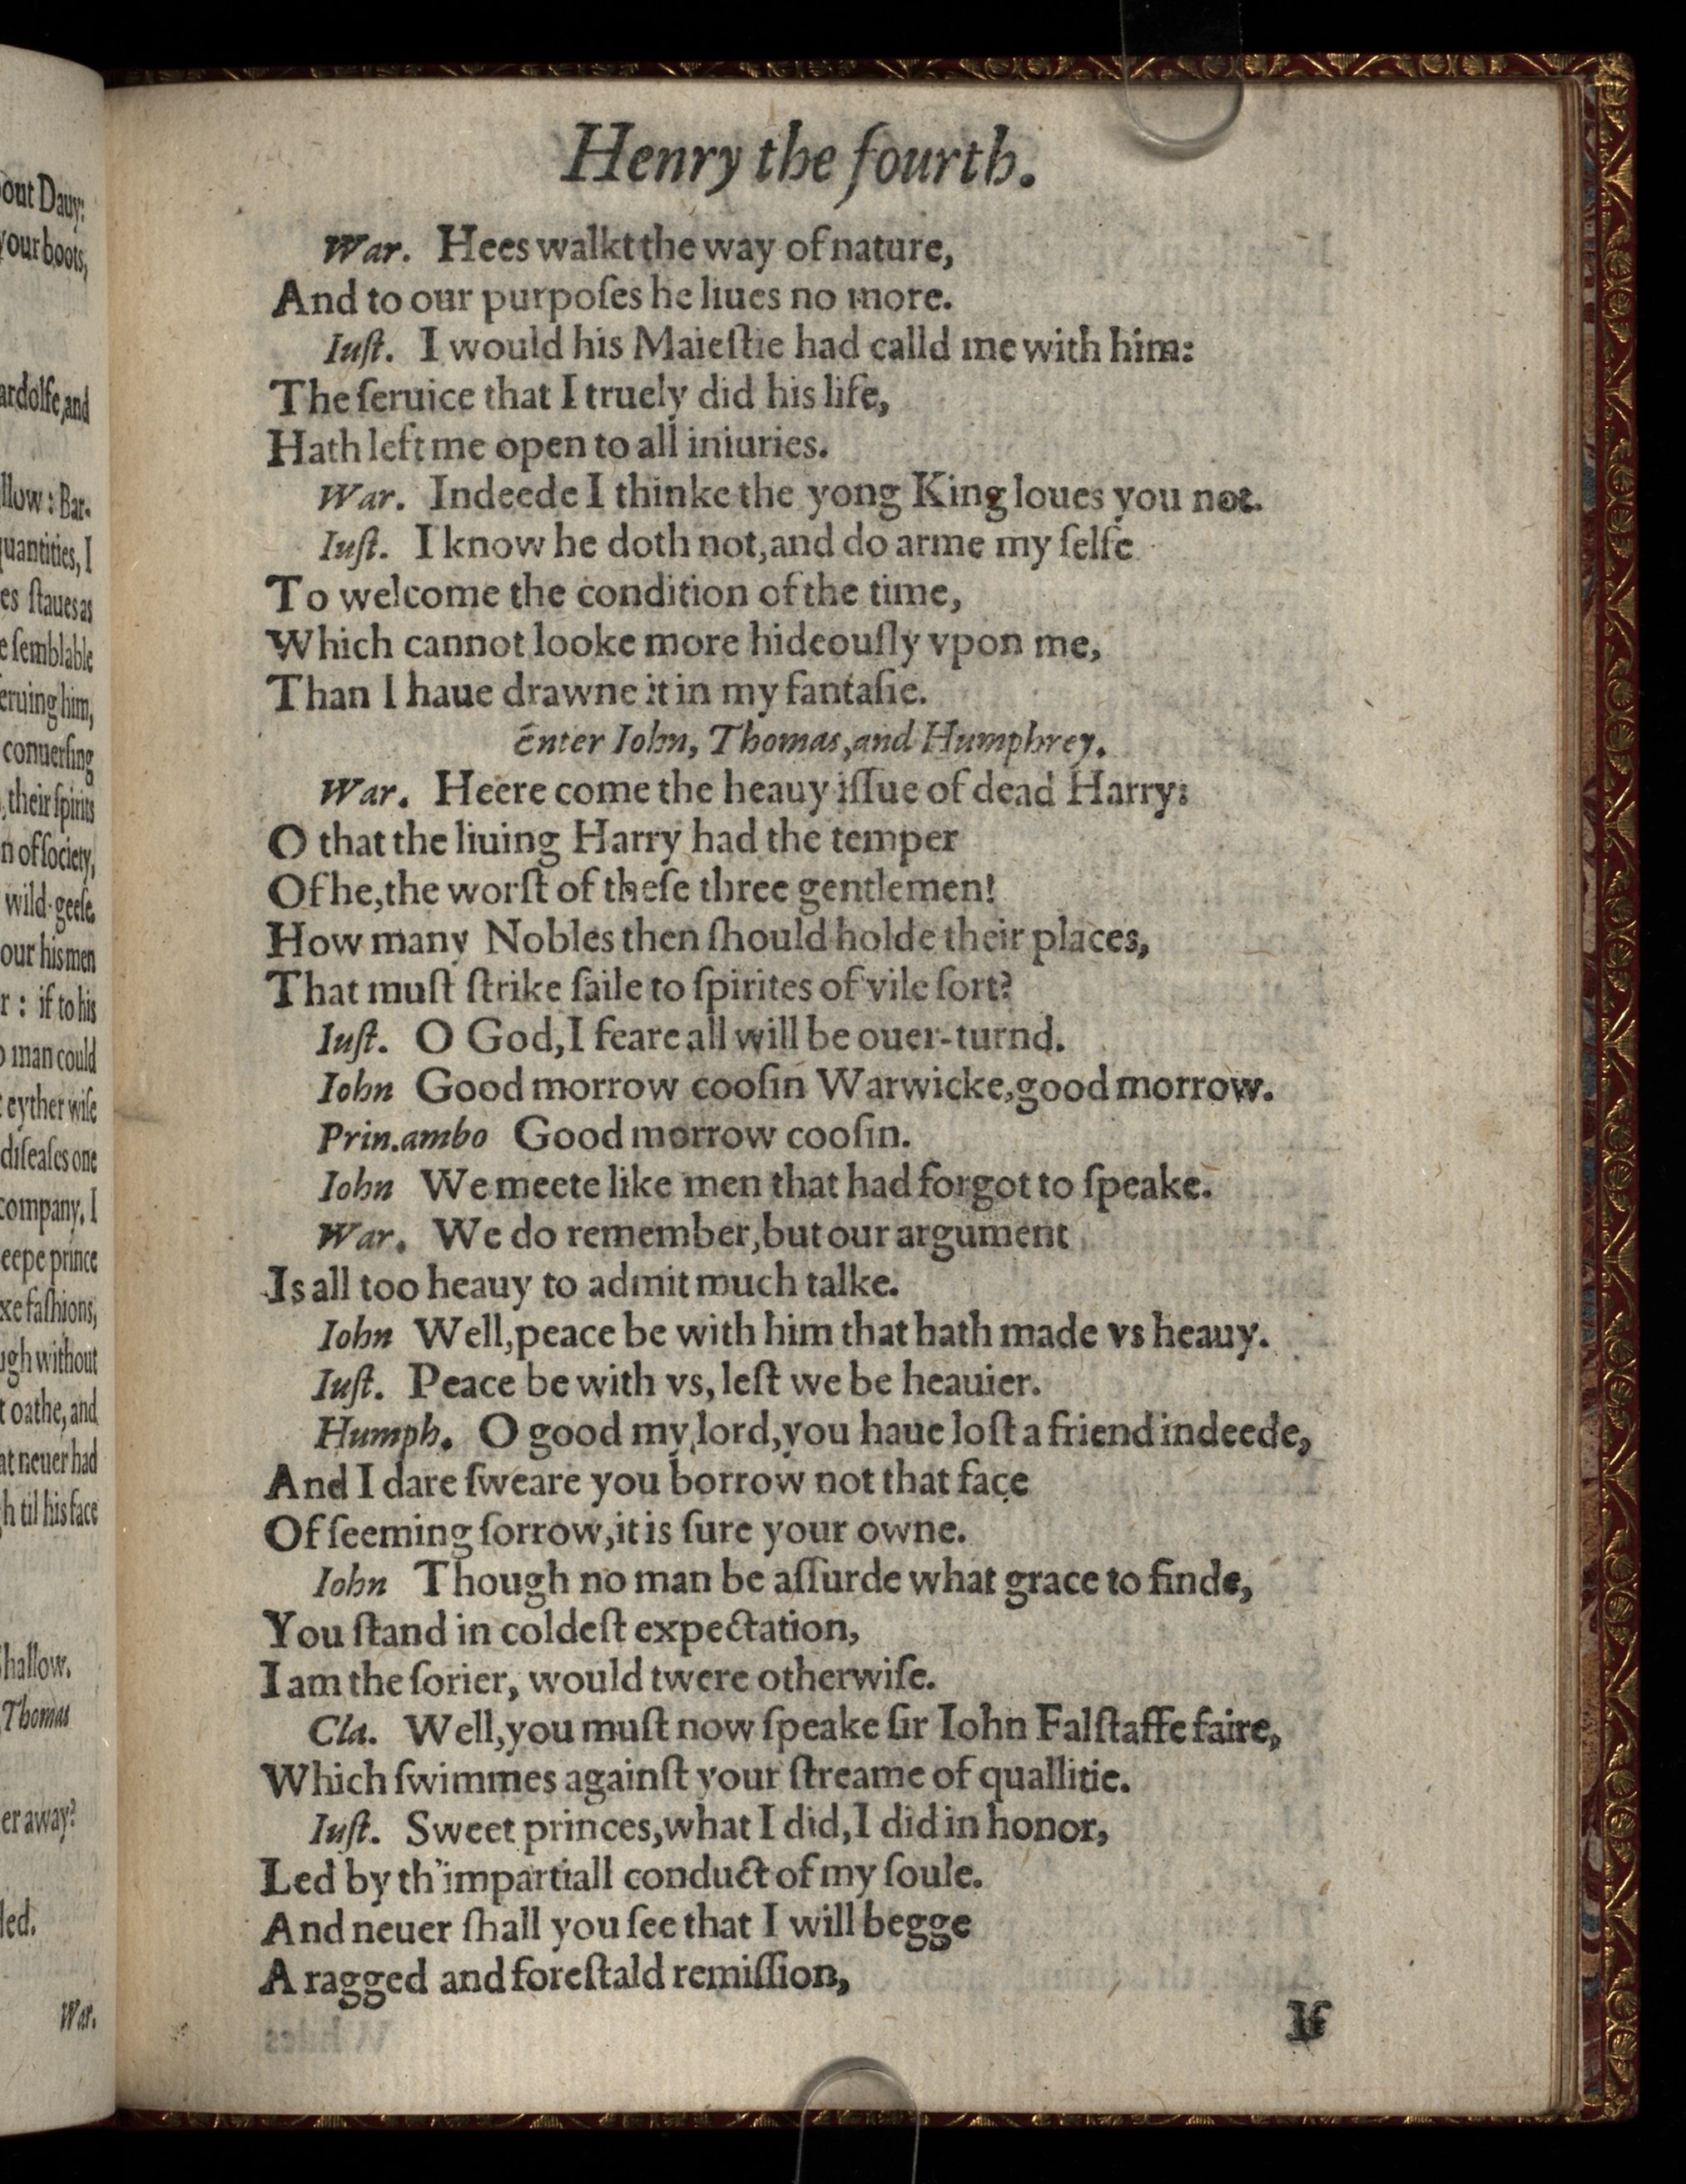 out Dauy:
your boots,
ardolfe, and
llow: Bar-
quantities, I
es ſtaues as
e ſemblable
eruing him,
conuerſing
, their ſpirits
n of ſociety,
wild-geeſe.
our his men
r: if to his
o man could
eyther wiſe
diſeaſes one
company, I
eepe prince
xe faſhions,
ugh without
t oathe, and
at neuer had
h til his face
hallow.
Thomas
er away?
led.
War.
Henry the fourth.
War. Hees walkt the way of nature,
And to our purpoſes he liues no more.
Iuſt. I would his Maieſtie had calld me with him:
The ſeruice that I truely did his life,
Hath left me open to all iniuries.
War. Indeede I thinke the yong King loues you not.
Iuſt. I know he doth not, and do arme my ſelfe
To welcome the condition of the time,
Which cannot looke more hideouſly vpon me,
Than I haue drawne it in my fantaſie.
Enter Iohn, Thomas, and Humphrey.
War. Heere come the heauy iſſue of dead Harry:
O that the liuing Harry had the temper
Of he, the worſt of theſe three gentlemen!
How many Nobles then ſhould holde their places,
That muſt ſtrike ſaile to ſpirites of vile ſort?
Iuſt. O God, I feare all will be ouer-turnd.
Iohn Good morrow cooſin Warwicke, good morrow.
Prin.ambo Good morrow cooſin.
Iohn We meete like men that had forgot to ſpeake.
War. We do remember, but our argument
Is all too heauy to admit much talke.
Iohn Well, peace be with him that hath made vs heauy.
Iuſt. Peace be with vs, leſt we be heauier.
Humph. O good my lord, you haue loſt a friend indeede,
And I dare ſweare you borrow not that face
Of ſeeming ſorrow, it is ſure your owne.
Iohn Though no man be aſſurde what grace to finde,
You ſtand in coldeſt expectation,
I am the ſorier, would twere otherwiſe.
Cla. Well, you muſt now ſpeake ſir Iohn Falſtaffe faire,
Which ſwimmes againſt your ſtreame of quallitie.
Iuſt. Sweet princes, what I did, I did in honor,
Led by th'impartiall conduct of my ſoule.
And neuer ſhall you ſee that I will begge
A ragged and foreſtald remiſſion,
If